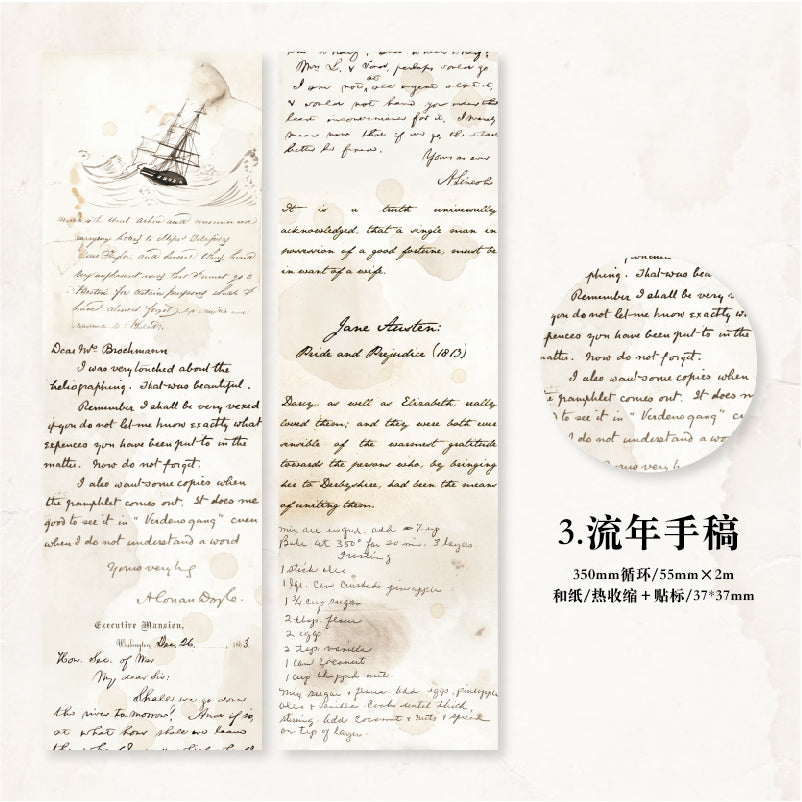 Dear Mrs Brockmann
I was very touched about the
heliographing. That was beautiful.
Remember I shall be very vexed
if you do not let me know exactly what
expences you have been put to in the
matter. Now do not forget.
I also want some copies when
the pamphlet comes out. It does me
good to see it in "Verdens gang" even
when I do not understand a word
Yours very
A Conan Doyle.
Executive Mansion,
Washington, Dec. 26, 1863.
Hon. Sec. of War
My dear Sir:
Shall we go down
the river to-morrow? And if so,
at what hour shall we leave
Mrs. L. & perhaps would go
I am not
& would not have you
inconvenience for it. I merely
if we go, the
Yours as ever
A. Lincoln
It is a truth universally
acknowledged, that a single man in
possession of a good fortune, must be
in want of a wife.
Jane Austen:
Pride and Prejudice (1813)
Darcy, as well as Elizabeth, really
loved them; and they were both ever
sensible of the warmest gratitude
towards the persons who, by bringing
her to Derbyshire, had been the means
of uniting them.
add 7 up
Bake at 350° for 30 min. 3 layers.
Frosting
1 stick oleo
1 lge. can crushed pineapple
1 ¾ cup sugar
2 tbsp. flour
2 eggs
2 tsp. vanilla
1 can coconut
1 cup chopped nuts
Mix sugar & flour. Add eggs, pineapple
oleo & vanilla. Cook until thick,
stirring. Add coconut & nuts & spread
on top of layer.
phing. That was bea
Remember I shall be very
you do not let me know exactly w
pences you have been put to in the
matter. Now do not forget.
I also want some copies when
e pamphlet comes out. It does m
to see it in "Verdens gang"
I do not understand a wor
Yours very
3.流年手稿
350mm循环/55mm×2m
和纸/热收缩+贴标/37*37mm